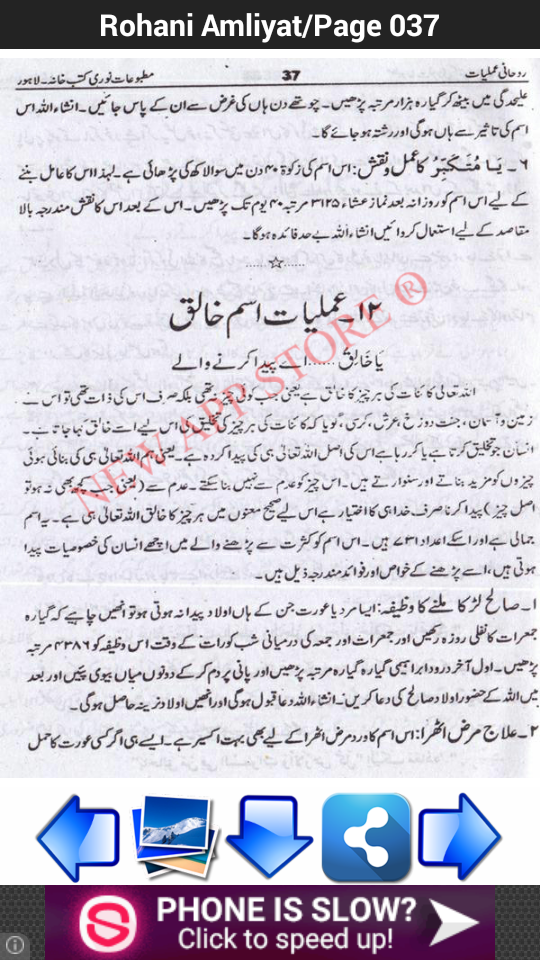 Rohani Amliyat/Page 037
روحانی عملیات 37 مطبوعات نوری کتب خانہ۔ لاہور
علیحدگی میں بیٹھ کر گیارہ ہزار مرتبہ پڑھیں۔ چوتھے دن ہاں کی غرض سے ان کے پاس جائیں۔ انشاءاللہ اس
اسم کی تاثیر سے ہاں ہوگی اور رشتہ ہو جائے گا۔
۶۔ یَا مُتَکَبِّرُ کا عمل و نقش: اس اسم کی زکوٰۃ ۴۰ دن میں سوا لاکھ کی پڑھائی ہے۔ لہٰذا اس کا عامل بننے
کے لیے اس اسم کو روزانہ بعد نماز عشاء ۳۱۲۵ مرتبہ ۴۰ یوم تک پڑھیں۔ اس کے بعد اس کا نقش مندرجہ بالا
مقاصد کے لیے استعمال کروائیں انشاءاللہ بے حد فائدہ ہوگا۔
......☆......
۱۲۔ عملیات اسم خالق
یَا خَالِقُ ...... اے پیدا کرنے والے
اللہ تعالیٰ کائنات کی ہر چیز کا خالق ہے یعنی جب کوئی چیز نہ تھی بلکہ صرف اس کی ذات تھی تو اس نے
زمین و آسمان، جنت دوزخ، عرش، کرسی، گویا کہ کائنات کی ہر چیز کی تخلیق کی اس لیے اسے خالق کہا جاتا ہے۔
انسان جو تخلیق کرتا ہے یا کر رہا ہے اس کی اصل اللہ تعالیٰ ہی کی پیدا کردہ ہے۔ یعنی ہم اللہ تعالیٰ ہی کی بنائی ہوئی
چیزوں کو مزید بناتے اور سنوارتے ہیں۔ اس چیز کو عدم سے نہیں بنا سکتے۔ عدم سے (یعنی جب کچھ بھی نہ ہو تو
اصل چیز) پیدا کرنا صرف خدا ہی کا اختیار ہے اس لیے صحیح معنوں میں ہر چیز کا خالق اللہ تعالیٰ ہی ہے۔ یہ اسم
جمالی ہے اور اسکے اعداد ۷۳۱ ہیں۔ اس اسم کو کثرت سے پڑھنے والے میں اچھے انسان کی خصوصیات پیدا
ہوتی ہیں، اسے پڑھنے کے خواص اور فوائد مندرجہ ذیل ہیں۔
۱۔ صالح لڑکا ملنے کا وظیفہ: ایسا مرد یا عورت جن کے ہاں اولاد پیدا نہ ہوتی ہو تو انھیں چاہیے کہ گیارہ
جمعرات کا نفلی روزہ رکھیں اور جمعرات اور جمعہ کی درمیانی شب کو رات کے وقت اس وظیفہ کو ۲۳۸۶ مرتبہ
پڑھیں۔ اول آخر درود ابراہیمی گیارہ گیارہ مرتبہ پڑھیں اور پانی پر دم کر کے دونوں میاں بیوی پئیں اور بعد
میں اللہ کے حضور اولاد صالح کی دعا کریں۔ انشاءاللہ دعا قبول ہوگی اور انھیں اولاد نرینہ حاصل ہوگی۔
۲۔ علاج مرض اٹھرا: اس اسم کا ورد مرض اٹھرا کے لیے بھی بہت اکسیر ہے۔ ایسے ہی اگر کسی عورت کا حمل
NEW APP STORE ®
PHONE IS SLOW?
Click to speed up!